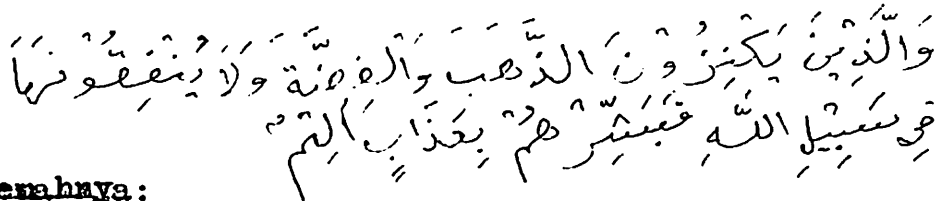 وَالَّذِيْنَ يَكْنِزُوْنَ الذَّهَبَ وَالْفِضَّةَ وَلَا يُنْفِقُوْنَهَا
فِى سَبِيْلِ اللَّهِ فَبَشِّرْهُمْ بِعَذَابٍ اَلِيْمٌ
emahnya: